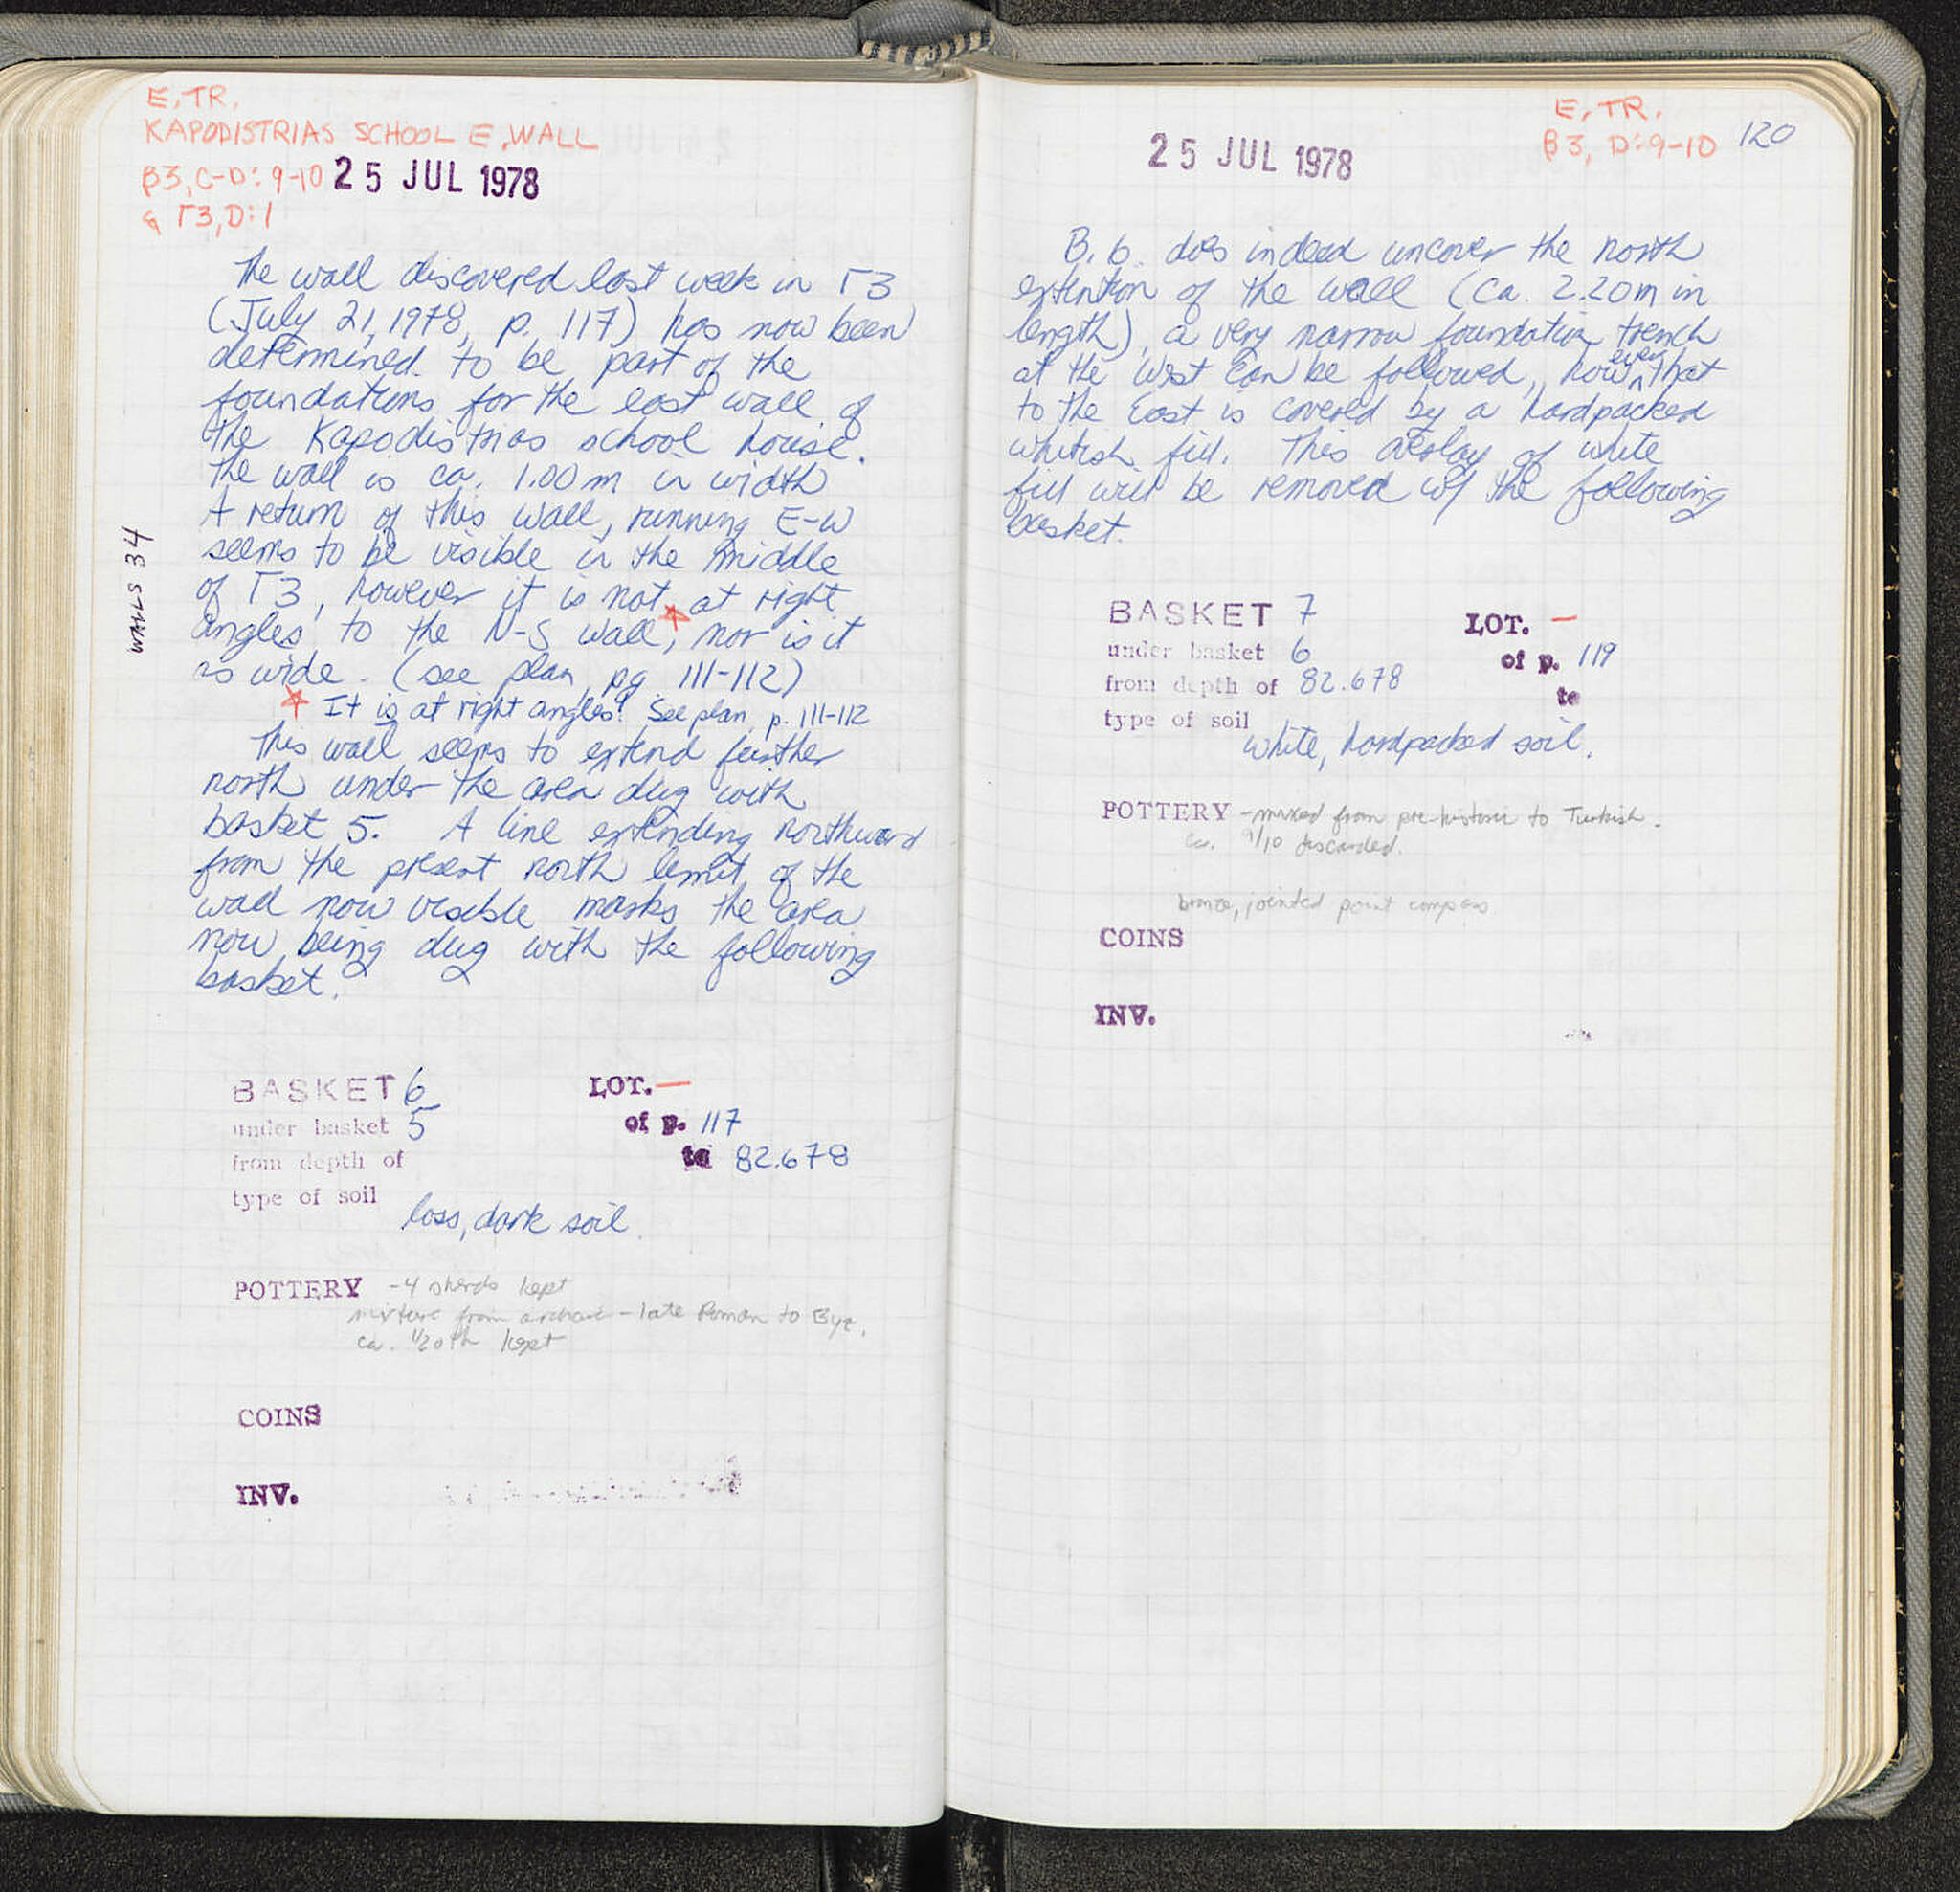 E. TR.
KAPODISTRIAS SCHOOL E. WALL
β3, C-D: 9-10 25 JUL 1978
& Γ3, D: 1
WALLS 34
The wall discovered last week in Γ3
(July 21, 1978, p. 117) has now been
determined to be part of the
foundations for the east wall of
the Kapodistrias school house.
The wall is ca. 1.00 m in width
A return of this wall, running E-W
seems to be visible in the middle
of Γ3, however it is not ☆ at right
angles to the N-S wall, nor is it
as wide. (see plan pg 111-112)
☆ It is at right angles! See plan, p. 111-112
This wall seems to extend further
north under the area dug with
basket 5. A line extending northward
from the present north limit of the
wall now visible marks the area
now being dug with the following
basket.
BASKET 6 LOT. —
under basket 5 of p. 117
from depth of to 82.678
type of soil
loss, dark soil.
POTTERY - 4 sherds kept
mixture from archaic - late Roman to Byz.
ca. 1/20th kept
COINS
INV.
E. TR.
β3, D: 9-10 120
25 JUL 1978
B. 6. does indeed uncover the north
extention of the wall (ca. 2.20 m in
length), a very narrow foundation trench
at the West can be followed, however that
to the East is covered by a hardpacked
whitish fill. This overlay of white
fill will be removed w/ the following
basket.
BASKET 7 LOT. —
under basket 6 of p. 119
from depth of 82.678 to
type of soil
white, hardpacked soil.
POTTERY - mixed from pre-historic to Turkish.
ca. 9/10 discarded.
bronze, jointed point compass
COINS
INV.